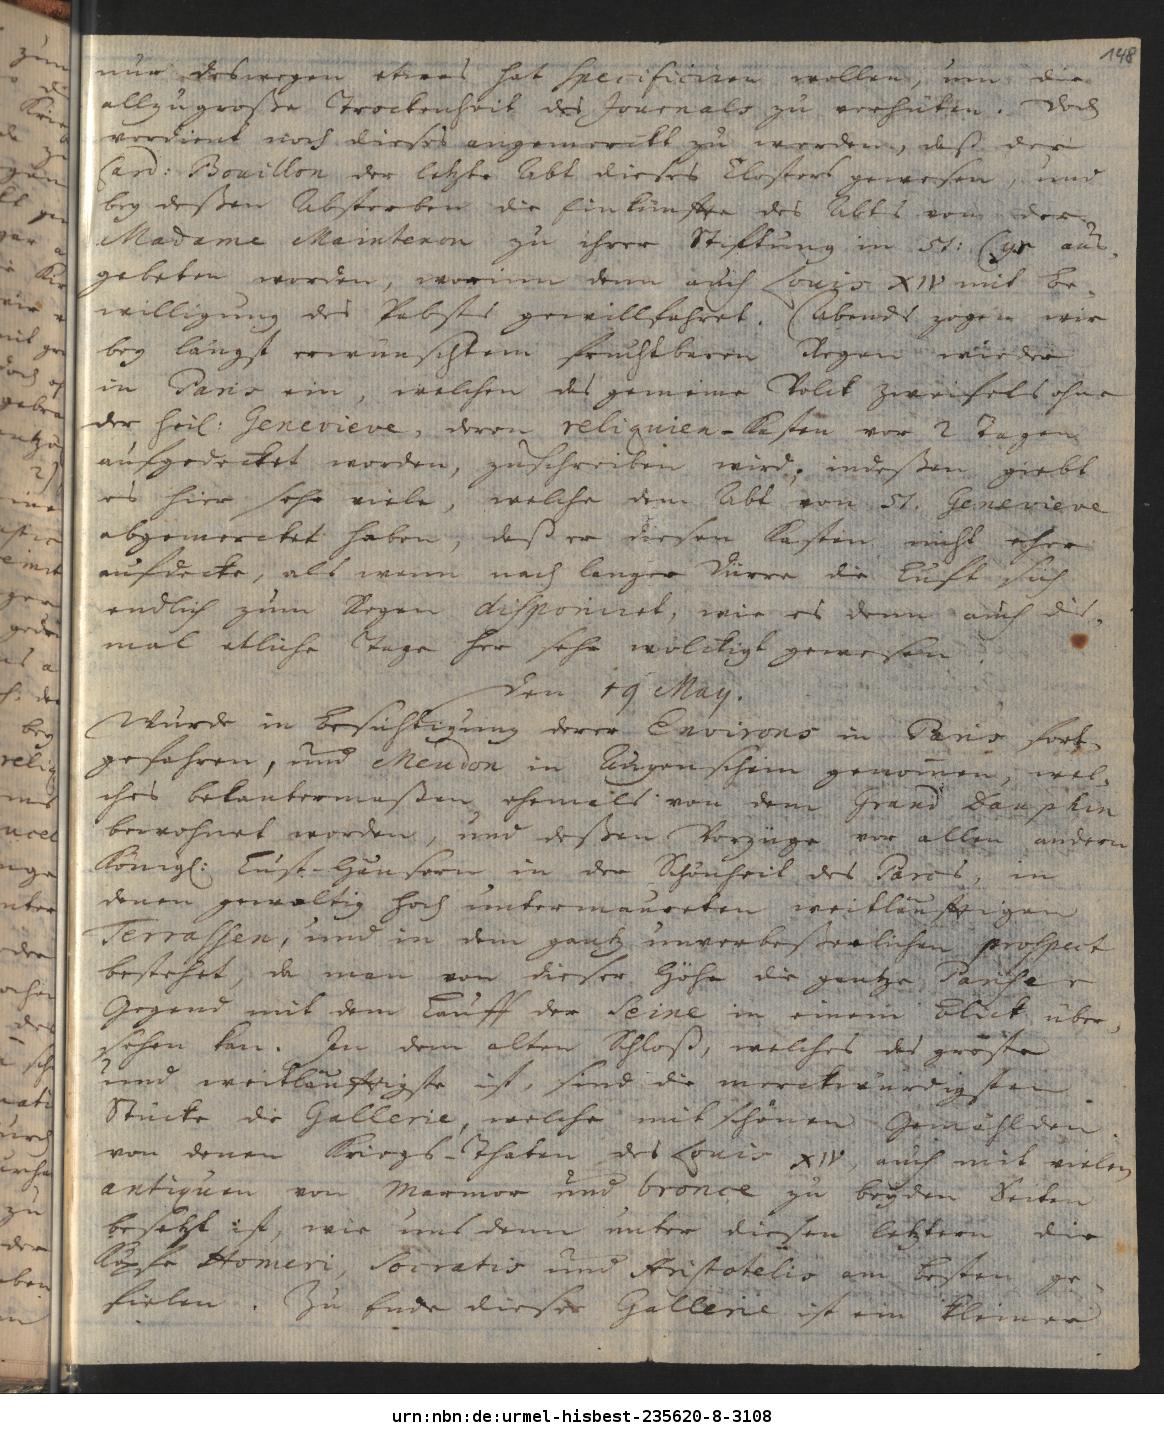 148
nur deswegen etwas hat specificiren wollen, um die
allzugroße Trockenheit des Journals zu verhüten. Doch
verdient noch dieses angemerckt zu werden, daß der
Card: Bouillon der letzte Abt dieses Closters gewesen, und
bey deßen Absterben die Einkünffte des Abts von der
Madame Maintenon zu ihrer Stifftung in St: Cyr aus-
gebeten worden, worinn denn auch Louis XIV mit Be-
willigung des Pabsts gewillfahret. Abends zogen wir
bey längst erwünschtem fruchtbaren Regen wieder
in Paris ein, welchen das gemeine Volck zweifels ohne
der heil: Genevieve, deren reliquien-Kasten vor 2 Tagen
aufgedecket worden, zuschreiben wird; indeßen giebt
es hier sehr viele, welche dem Abt von St. Genevieve
abgemercket haben, daß er diesen Kasten nicht eher
aufdecke, als wenn nach langer Dürre die Lufft sich
endlich zum Regen disponiret, wie es denn auch dis-
mal etliche Tage her sehr wolckigt gewesen.
Den 19 May.
Wurde in Besichtigung derer Environs in Paris fort-
gefahren, und Meudon in Augenschein genommen, wel-
ches bekantermaßen ehemals von dem Grand Dauphin
bewohnet worden, und deßen Vorzüge vor allen andern
Königl: Lust-Häusern in der Schönheit des Parcs, in
denen gewaltig hoch untermaureten weitläufftigen
Terrassen, und in dem gantz unverbeßerlichen prospect
bestehet, da man von dieser Höhe die gantze Pariser
Gegend mit dem Lauff der Seine in einem Blick über-
sehen kan. In dem alten Schloß, welches das gröste
und weitläufftigste ist, sind die merckwürdigsten
Stücke die Gallerie, welche mit schönen Gemählden
von denen Kriegs-Thaten des Louis XIV, auch mit vielen
antiquen von Marmor und bronce zu beyden Seiten
besetzt ist, wie uns denn unter diesen letztern die
Köpfe Homeri, Socratis und Aristotelis am besten ge-
fielen. Zu Ende dieser Gallerie ist ein kleiner
urn:nbn:de:urmel-hisbest-235620-8-3108